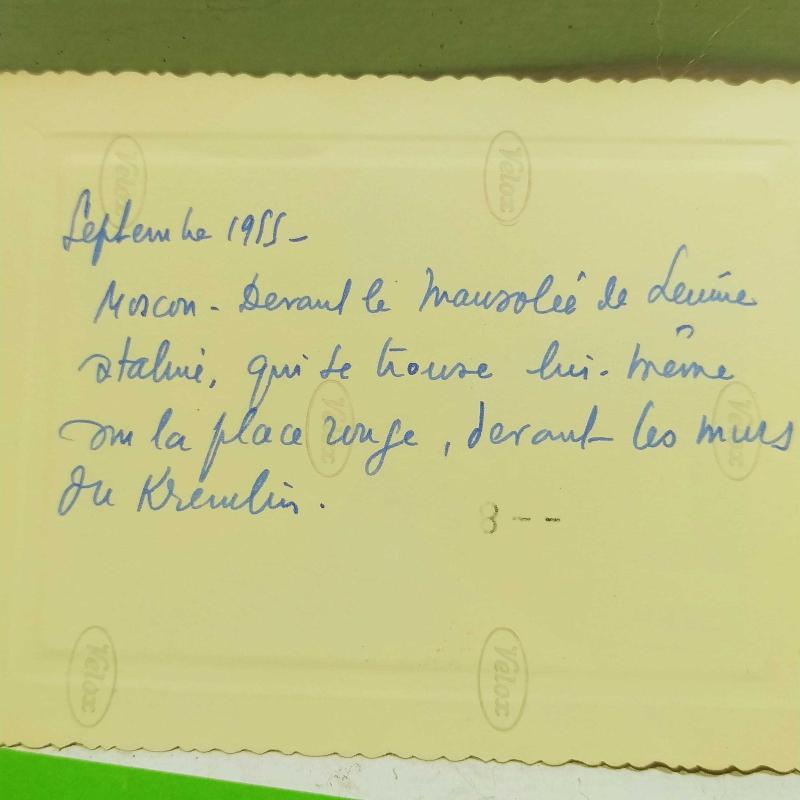 Velox Velox
Septembre 1955 -
Moscou - Devant le Mausolée de Lenine
Staline, qui se trouve lui-même
sur la place rouge, devant les murs
Velox Velox
du Kremlin.
8 - -
Velox Velox